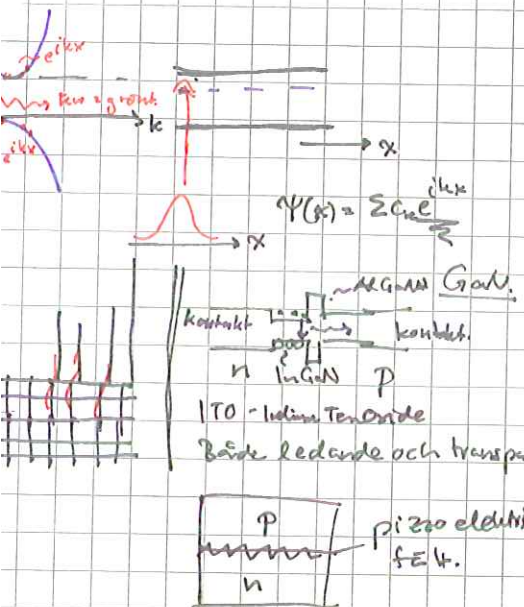 e^{ikx}
k
e^{ikx}
x
x
Ψ(x) = Σ c_k e^{ikx}
AlGaN GaN.
kontakt
kontakt.
n InGaN p
ITO - Indium Tenoxide
Både ledande och transpa
p
n
pizzo elektri
fält.